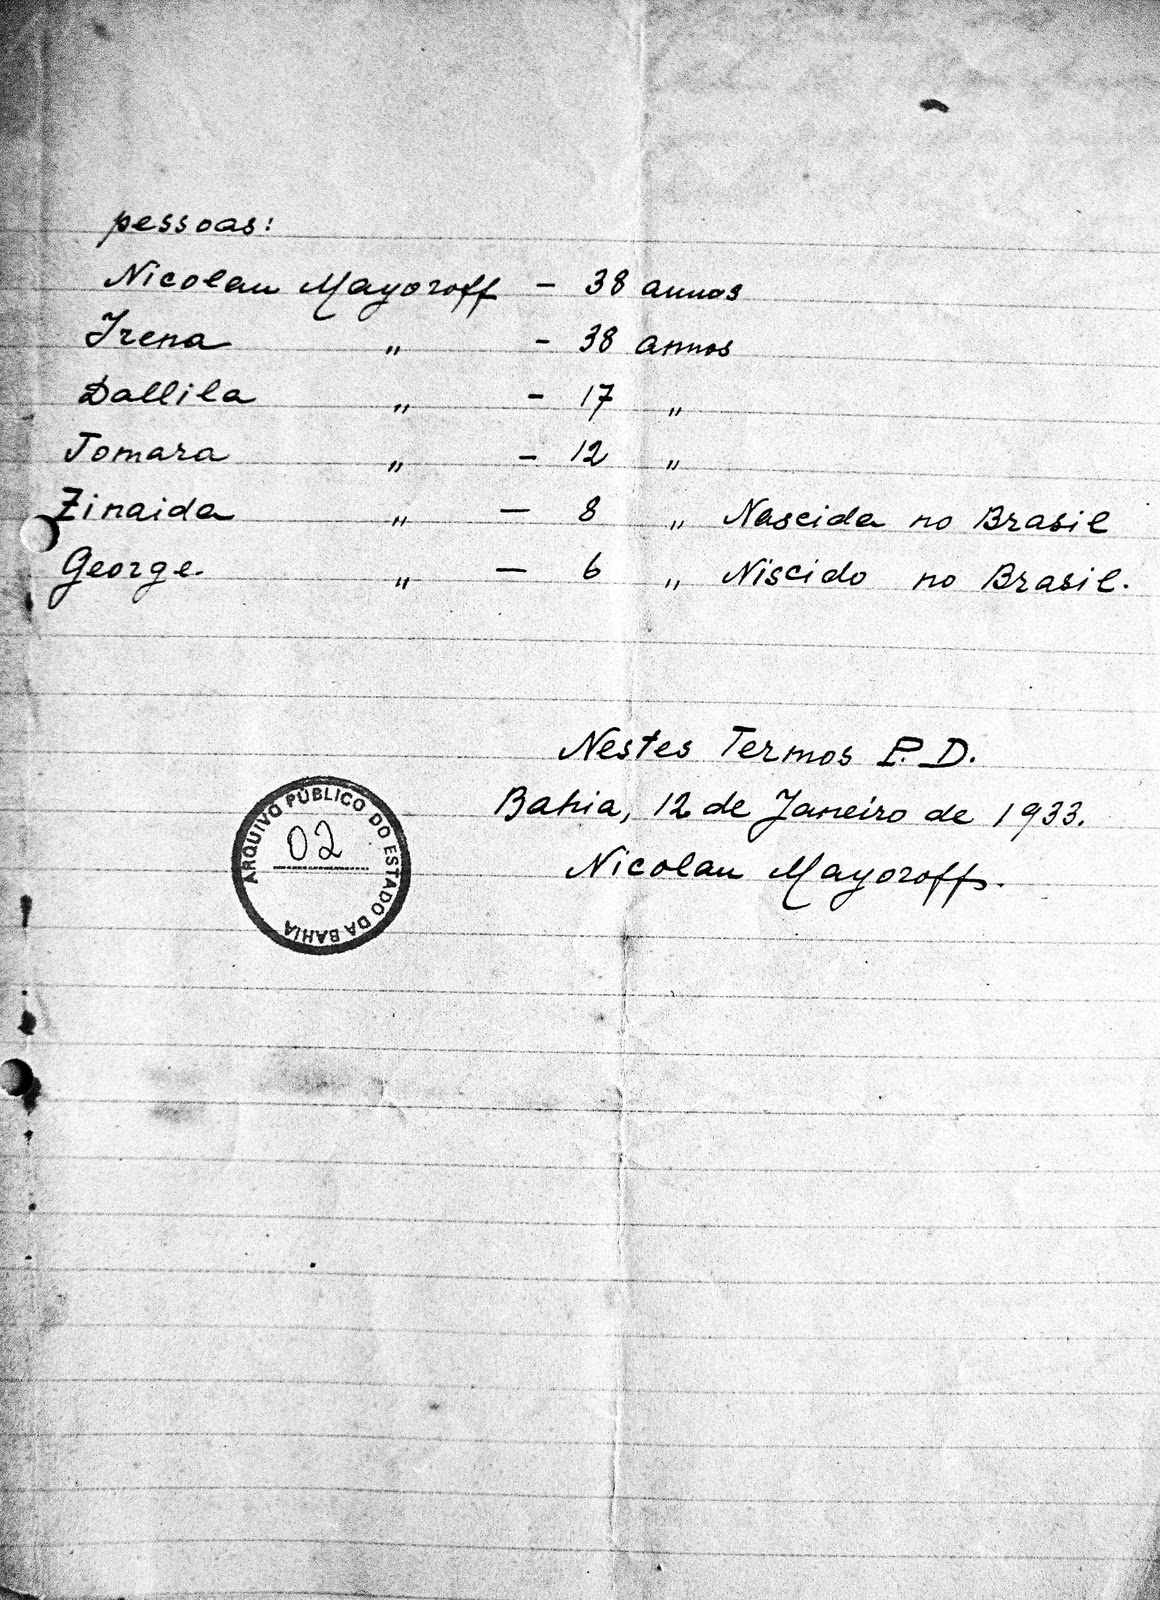 pessoas:
Nicolau Mayoroff - 38 annos
Irena " - 38 annos
Dallila " - 17 "
Tomara " - 12 "
Zinaida " — 8 " Nascida no Brasil
George. " — 6 " Niscido no Brasil.
Nestes Termos P. D.
Bahia, 12 de Janeiro de 1933.
Nicolau Mayoroff.
ARQUIVO PÚBLICO DO ESTADO DA BAHIA
02